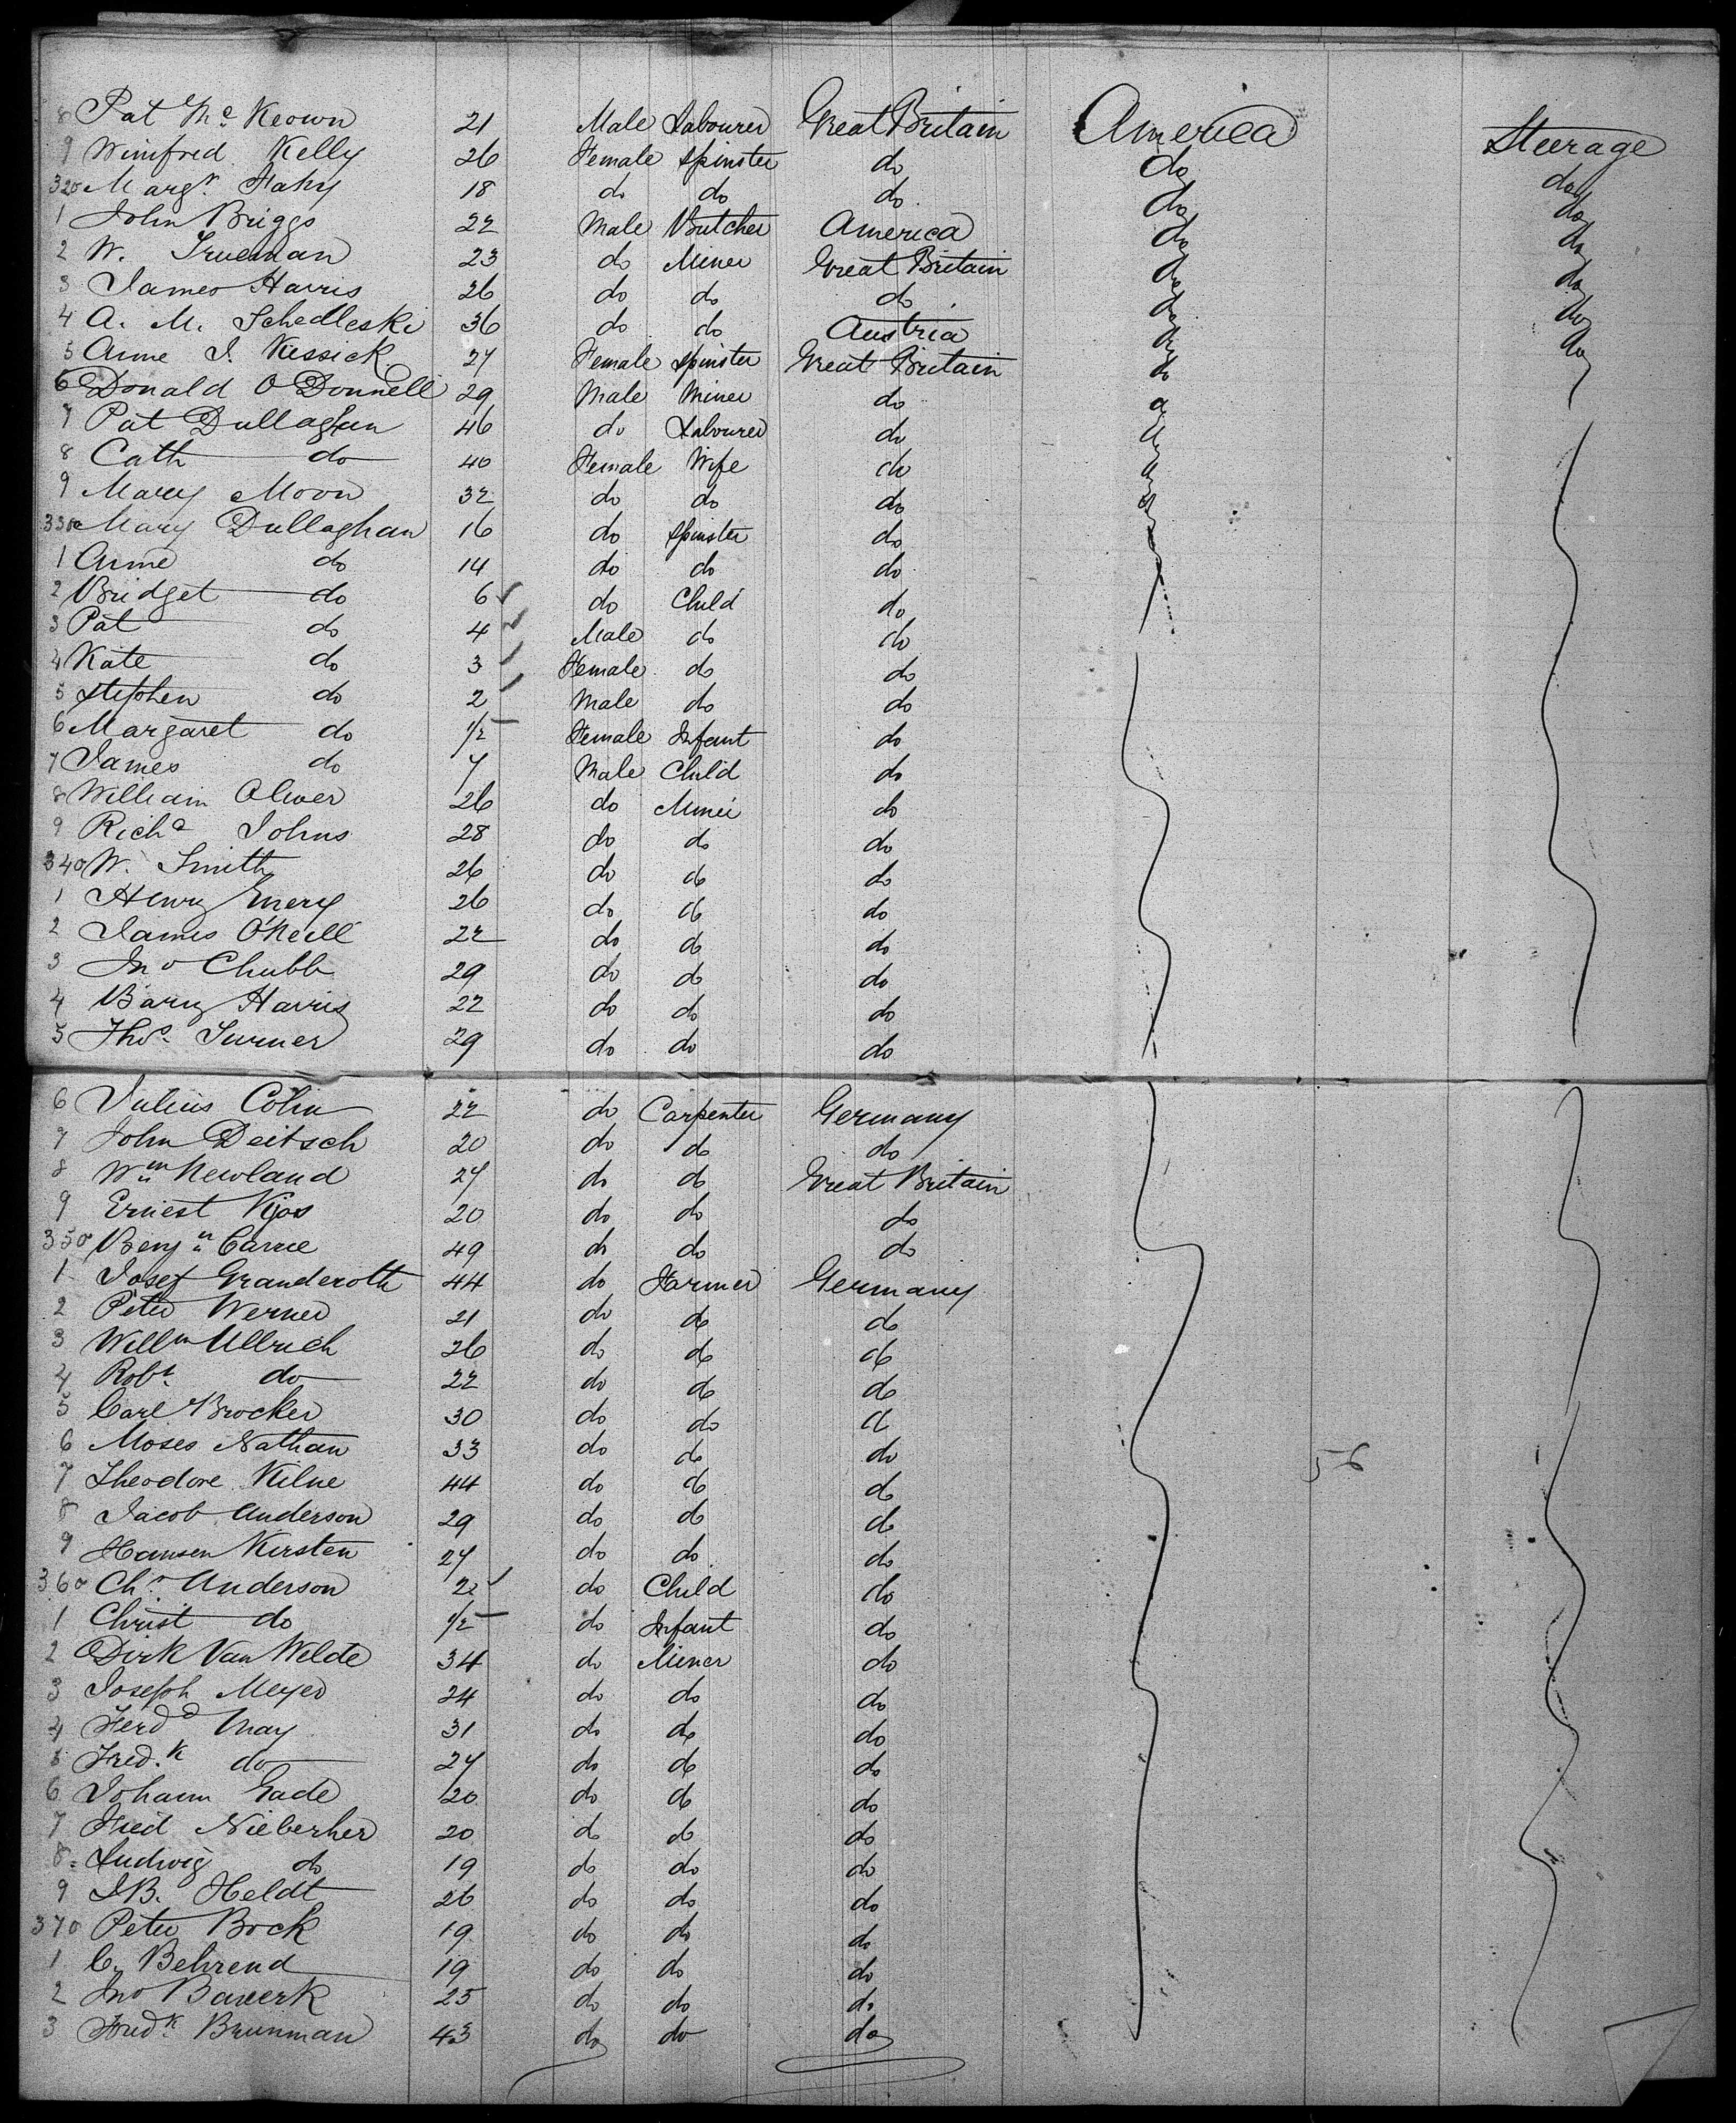 8 Pat McKeown 21 Male Labourer Great Britain America Steerage
9 Winifred Kelly 26 Female Spinster do do do
320 Margt. Fahy 18 do do do do do
1 John Briggs 22 Male Butcher America do do
2 W. Trueman 23 do Miner Great Britain do do
3 James Harris 26 do do do do do
4 A. M. Schedleski 36 do do Austria do do
5 Anne J. Kissick 27 Female Spinster Great Britain do
6 Donald O Donnell 29 Male Miner do do
7 Pat Dullaghan 46 do Labourer do do
8 Cath do 40 Female Wife do do
9 Mary Moon 32 do do do do
330 Mary Dullaghan 16 do Spinster do
1 Anne do 14 do do do
2 Bridget do 6 do Child do
3 Pat do 4 Male do do
4 Kate do 3 Female do do
5 Stephen do 2 Male do do
6 Margaret do 1/2 Female Infant do
7 James do 7 Male Child do
8 William Oliver 26 do Miner do
9 Richd Johns 28 do do do
340 W. Smith 26 do do do
1 Henry Emery 26 do do do
2 James O'Neill 22 do do do
3 Jno Chubb 29 do do do
4 Barry Harris 22 do do do
5 Thos. Turner 29 do do do
6 Julius Cohn 22 do Carpenter Germany
7 John Deitsch 20 do do do
8 Wm Newland 27 do do Great Britain
9 Ernest 20 do do do
350 Benjn Carne 49 do do do
1 Josef Granderoth 44 do Farmer Germany
2 Peter Werner 21 do do do
3 Willm Ullrich 26 do do do
4 Robt. do 22 do do do
5 Carl Brocker 30 do do do
6 Moses Nathan 33 do do do 56
7 Theodore Kilne 44 do do do
8 Jacob Anderson 29 do do do
9 Hansen Kirsten 27 do do do
360 Chr. Anderson 2 do Child do
1 Christ do 1/2 do Infant do
2 Dirk Van Welde 34 do Miner do
3 Joseph Meyer 24 do do do
4 Ferdd May 31 do do do
5 Fred.k do 27 do do do
6 Johann Gade 20 do do do
7 Fried Nieberher 20 do do do
8 Ludwig do 19 do do do
9 J.B. Heldt 26 do do do
370 Peter Bock 19 do do do
1 C. Behrend 19 do do do
2 Jno Bauerk 25 do do do
3 Fredk. Brunman 43 do do do